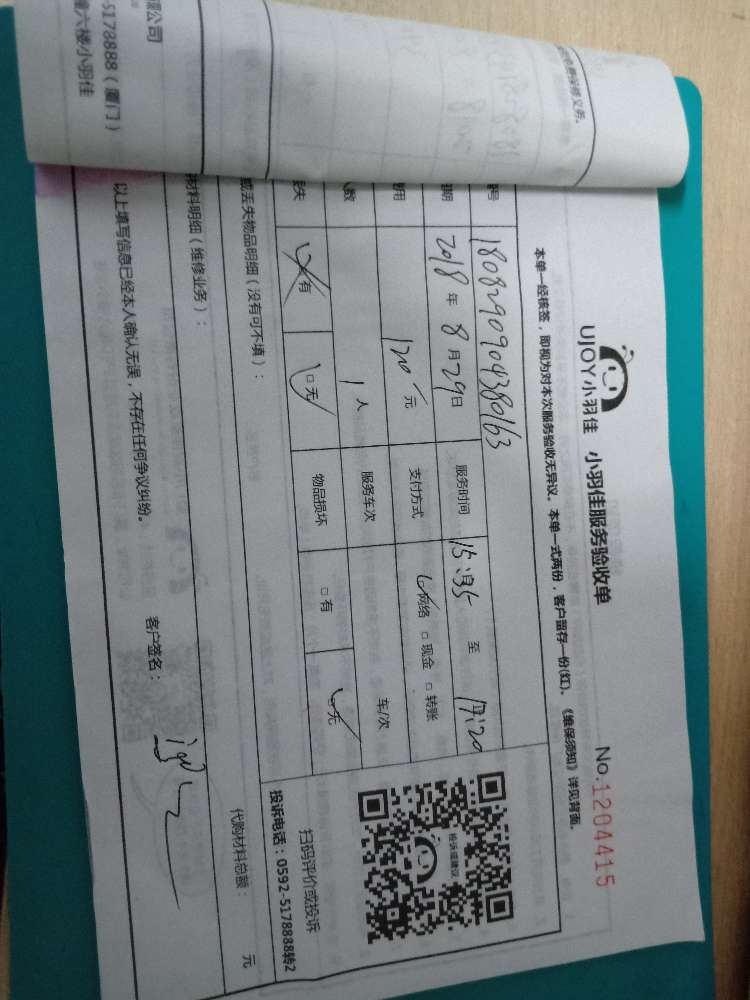 UJOY小羽佳 小羽佳服务验收单 No.1204415
本单一经核签，即视为对本次服务验收无异议。本单一式两份，客户留存一份(红)。《维保须知》详见背面。
号 180829090438063
期 2018年8月29日 服务时间 15:35 至 17:20
用 120元 支付方式 网络 □现金 □转账
人数 1人 服务车次 车/次
丢失 有 □无 物品损坏 □有 无
或丢失物品明细（没有可不填）：
材料明细（维修业务）：
代购材料总额： 元
以上填写信息已经本人确认无误，不存在任何争议纠纷。
客户签名：
投诉或建议
扫码评价或投诉
投诉电话：0592-5178888转2
限公司
-5178888（厦门）
六楼小羽佳
保修义务。